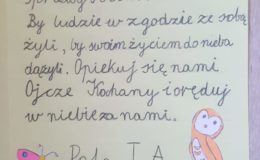 By ludzie w zgodzie ze sobą
żyli, by swoim życiem do nieba
dążyli. Opiekuj się nami
Ojcze Kochany i oręduj
w niebie za nami.